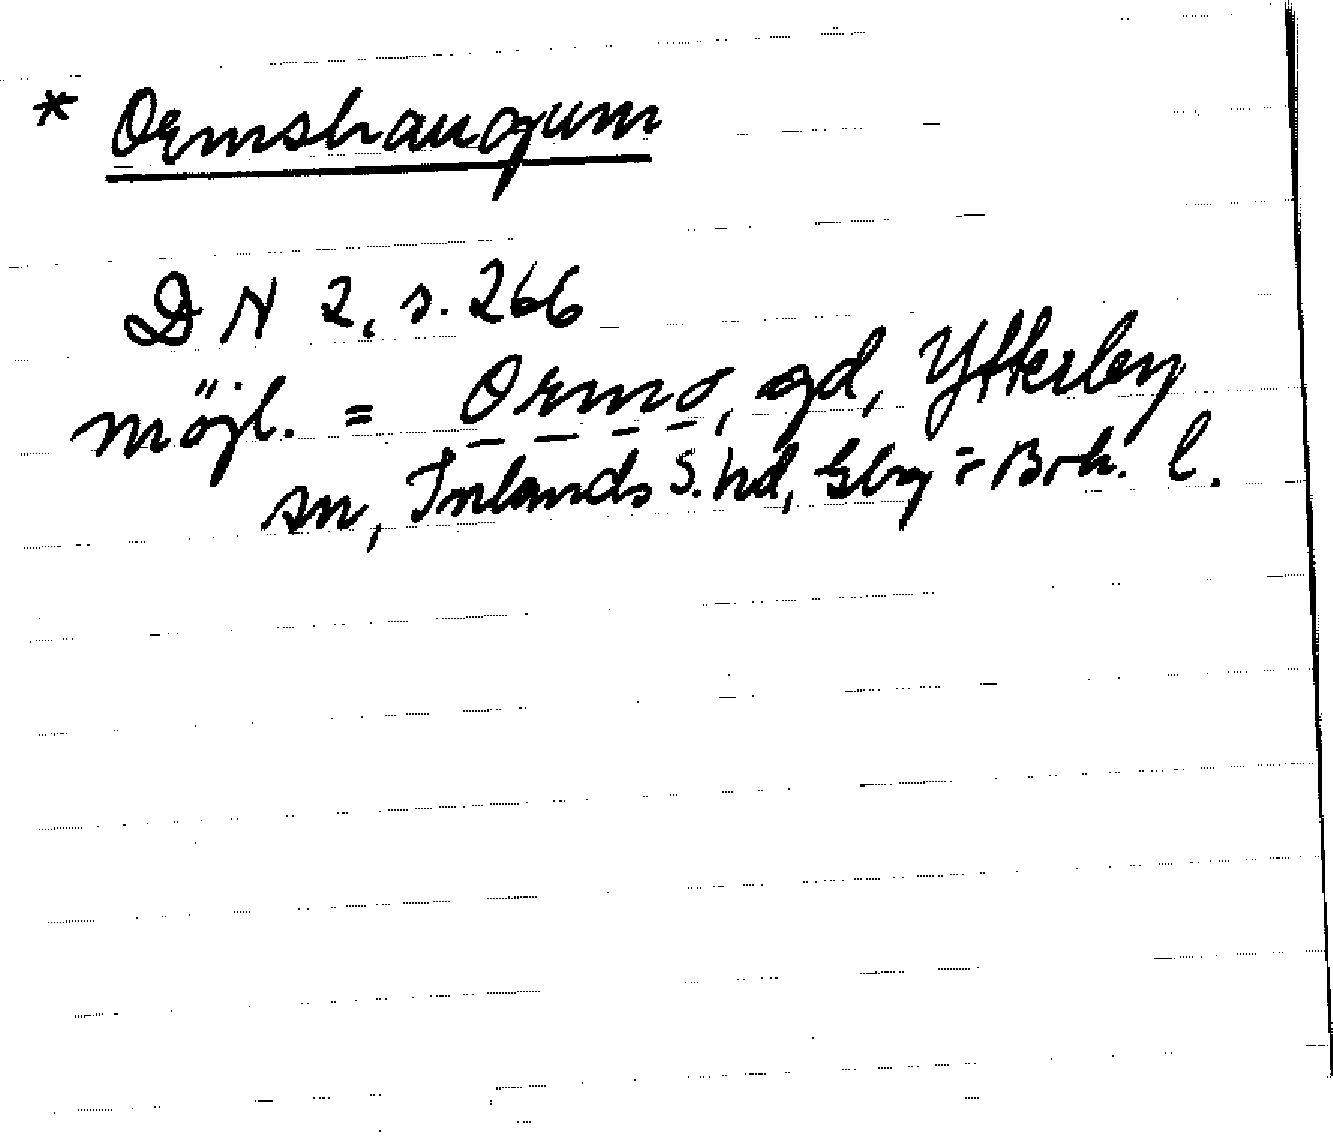 * Ormshaugum
DN 2, s. 266
möjl. = Ormo, gd, Ytterby
sn, Inlands S. hd, Gbg = Boh. l.